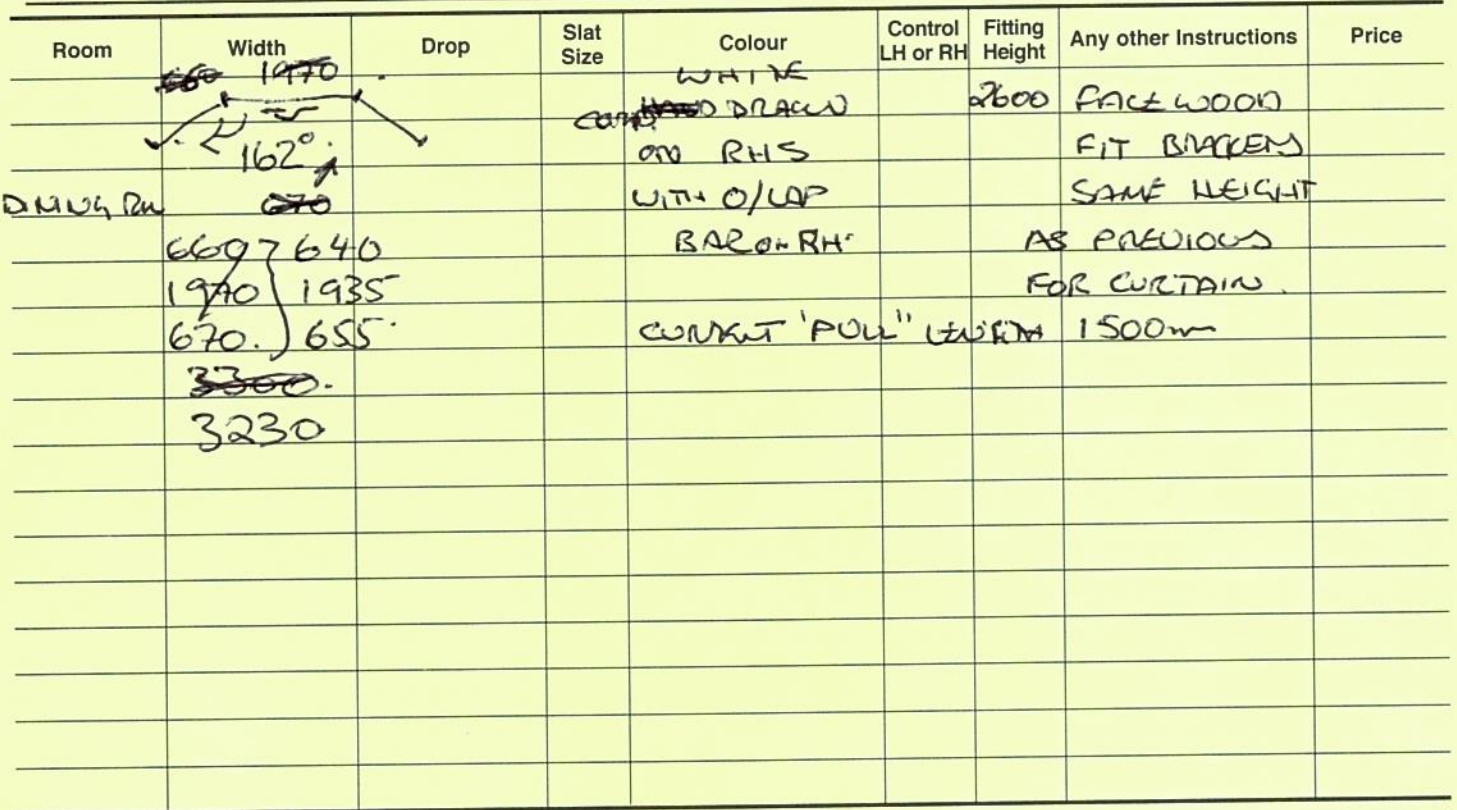 Room Width Drop Slat Size Colour Control LH or RH Fitting Height Any other Instructions Price
660 1970 WHITE
CORD DRAWN 2600 FACE WOOD
162° ON RHS FIT BRACKETS
DINING RM 670 WITH O/LAP SAME HEIGHT
660 640 BAR ON RH AS PREVIOUS
1970 1935 FOR CURTAIN.
670. 655 "PULL" LENGTH 1500mm
3300.
3230